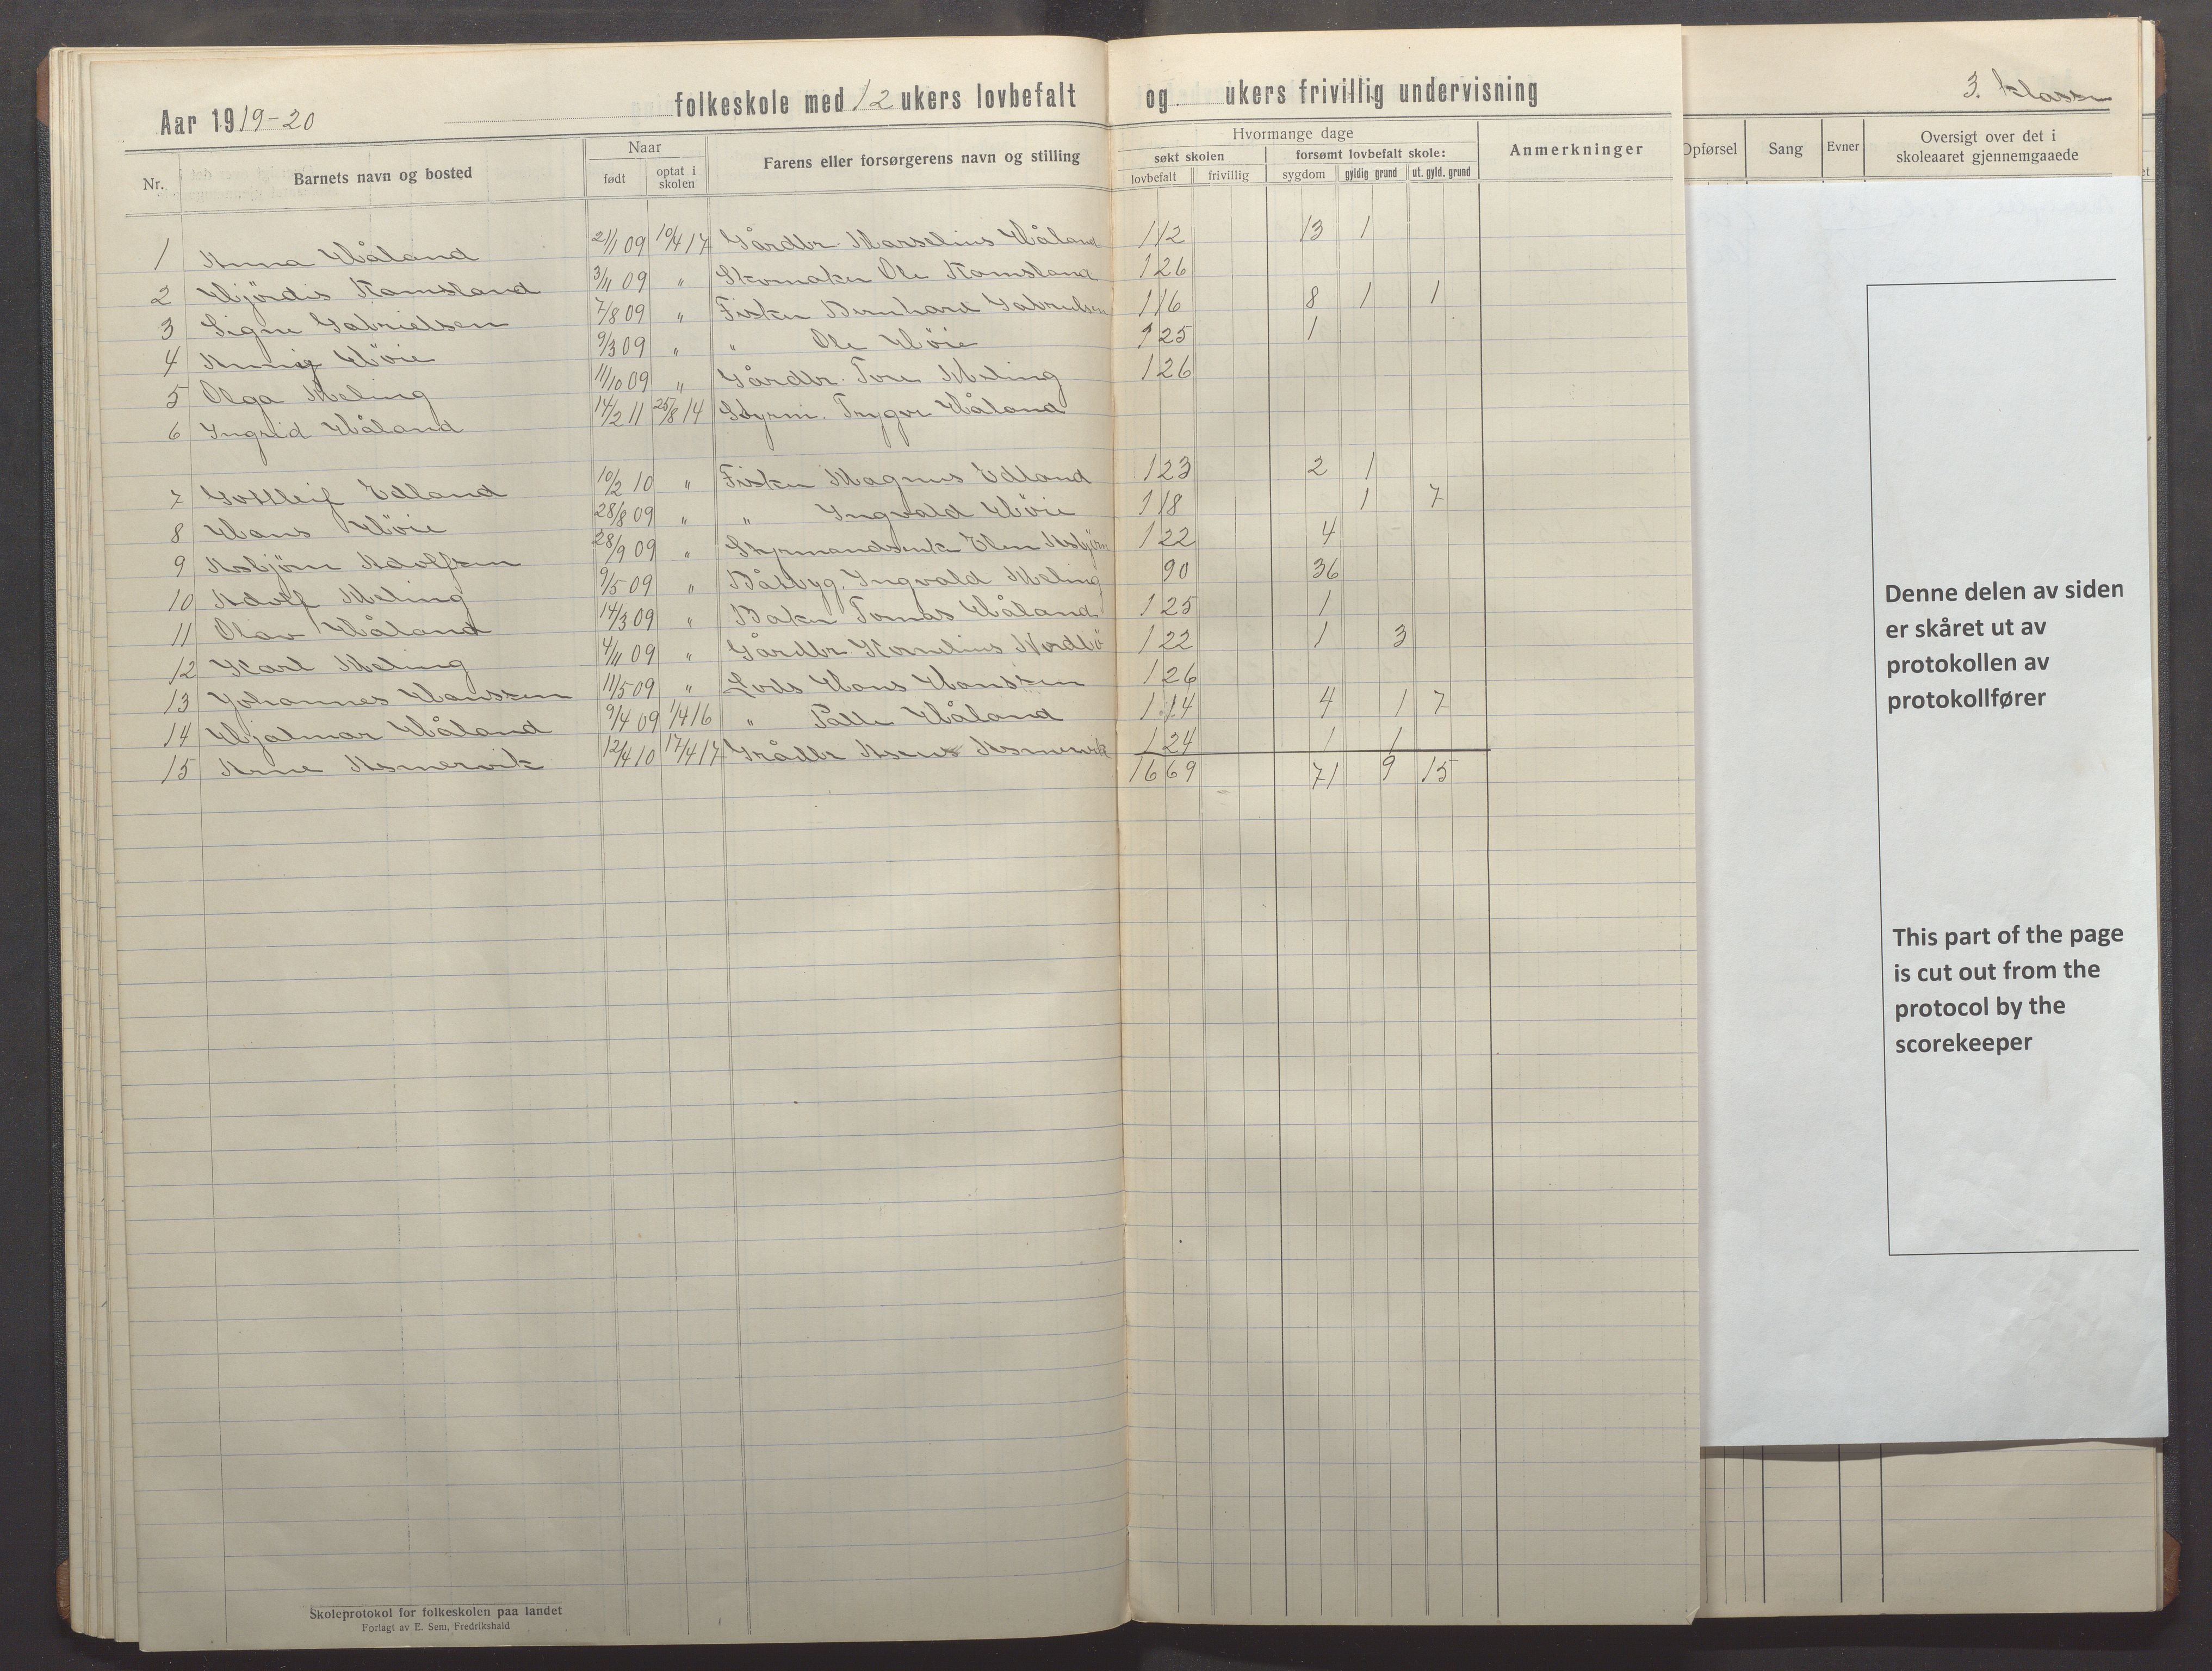 Aar 1919-20 folkeskole med 12 ukers lovbefalt og ukers frivillig undervisning
3. klasse
Nr. Barnets navn og bosted Naar født optat i skolen Farens eller forsørgerens navn og stilling Hvormange dage søkt skolen lovbefalt frivillig forsømt lovbefalt skole: sygdom gyldig grund ut. gyld. grund Anmerkninger
Opførsel Sang Evner Oversigt over det i skoleaaret gjennemgaaede
1 Anna Håland 2/1 09 10/4 17 Gårdbr. Marselius Håland 112 13 1
2 Hjördis Kamsland 3/11 09 " Skomaker Ole Kamsland 126
3 Signe Gabrielsen 7/8 09 " Fisker Bernhard Gabrielsen 116 8 1 1
4 Höie 9/3 09 " " Ole Höie 125 1
5 Olga Meling 11/10 09 " Gårdbr. Tore Meling 126
6 Ingrid Håland 14/2 11 25/8 14 Styrm. Trygve Håland
7 Gottleif Edland 10/2 10 " Fisker Magnus Edland 123 2 1
8 Hans Höie 28/8 09 " " Ingvald Höie 118 1 7
9 Asbjörn Adolfsen 28/9 09 " Styrmandsenke Elen Asbjörn 122 4
10 Adolf Meling 9/5 09 " Båtbyg. Ingvald Meling 90 36
11 Olav Håland 14/3 09 " Baker Tomas Håland 125 1
12 Karl Meling 4/11 09 " Gårdbr. Kornelius Nordbö 122 1 3
13 Johannes Hanssen 11/5 09 " Lods Hans Hanssen 126
14 Hjalmar Håland 9/4 09 1/4 16 " Palle Håland 114 4 1 7
15 Arne Asmervik 12/4 10 17/4 17 Grådbr Asmervik 124 1 1
1669 71 9 15
Denne delen av siden
er skåret ut av
protokollen av
protokollfører
This part of the page
is cut out from the
protocol by the
scorekeeper
Skoleprotokol for folkeskolen paa landet
Forlagt av E. Sem, Fredrikshald